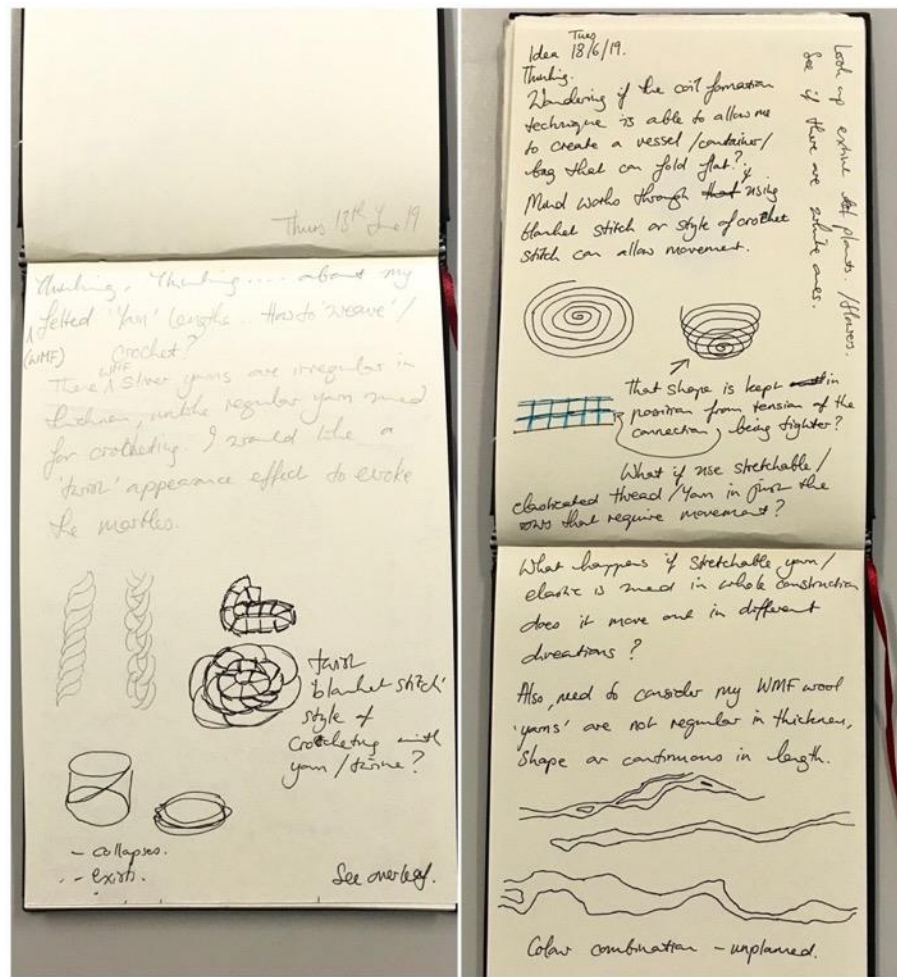 Thurs 13th June 19
Thinking, Thinking .... about my
felted 'Yarn' lengths.. How to 'weave'/
(WMF) crochet?
There WMF Sliver yarns are irregular in
thickness, unlike regular yarn used
for crocheting. I would like a
'twist' appearance effect to evoke
the
twist
'blanket stitch'
style of
crocheting with
yarn / twine?
- collapses.
- exists.
See overleaf.
Tues
Idea 18/6/19.
Thinking.
Wondering if the coil formation
technique is able to allow me
to create a vessel / container /
bag that can fold flat?
Mind works through that if using
blanket stitch or style of crochet
stitch can allow movement.
Look up extinct plants. / flowers.
See if there are white ones.
That shape is kept in
position from tension of the
connection being tighter?
What if use stretchable /
elasticated thread / Yarn in just the
rows that require movement?
What happens if stretchable yarn /
elastic is used in whole construction
does it move out in different
directions?
Also, need to consider my WMF wool
'yarns' are not regular in thickness,
shape or continuous in length.
Colour combination - unplanned.